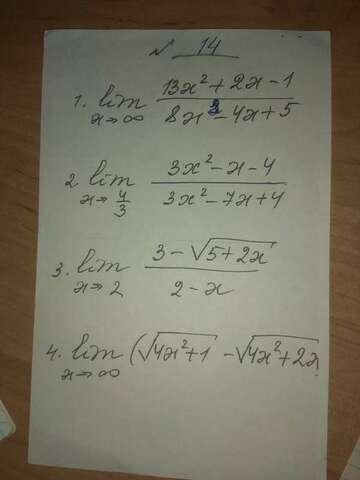 № 14
1. lim x→∞ (13x² + 2x - 1)/(8x³ - 4x + 5)
2 lim x→4/3 (3x² - x - 4)/(3x² - 7x + 4)
3. lim x→2 (3 - √(5 + 2x))/(2 - x)
4. lim x→∞ (√(4x² + 1) - √(4x² + 2x